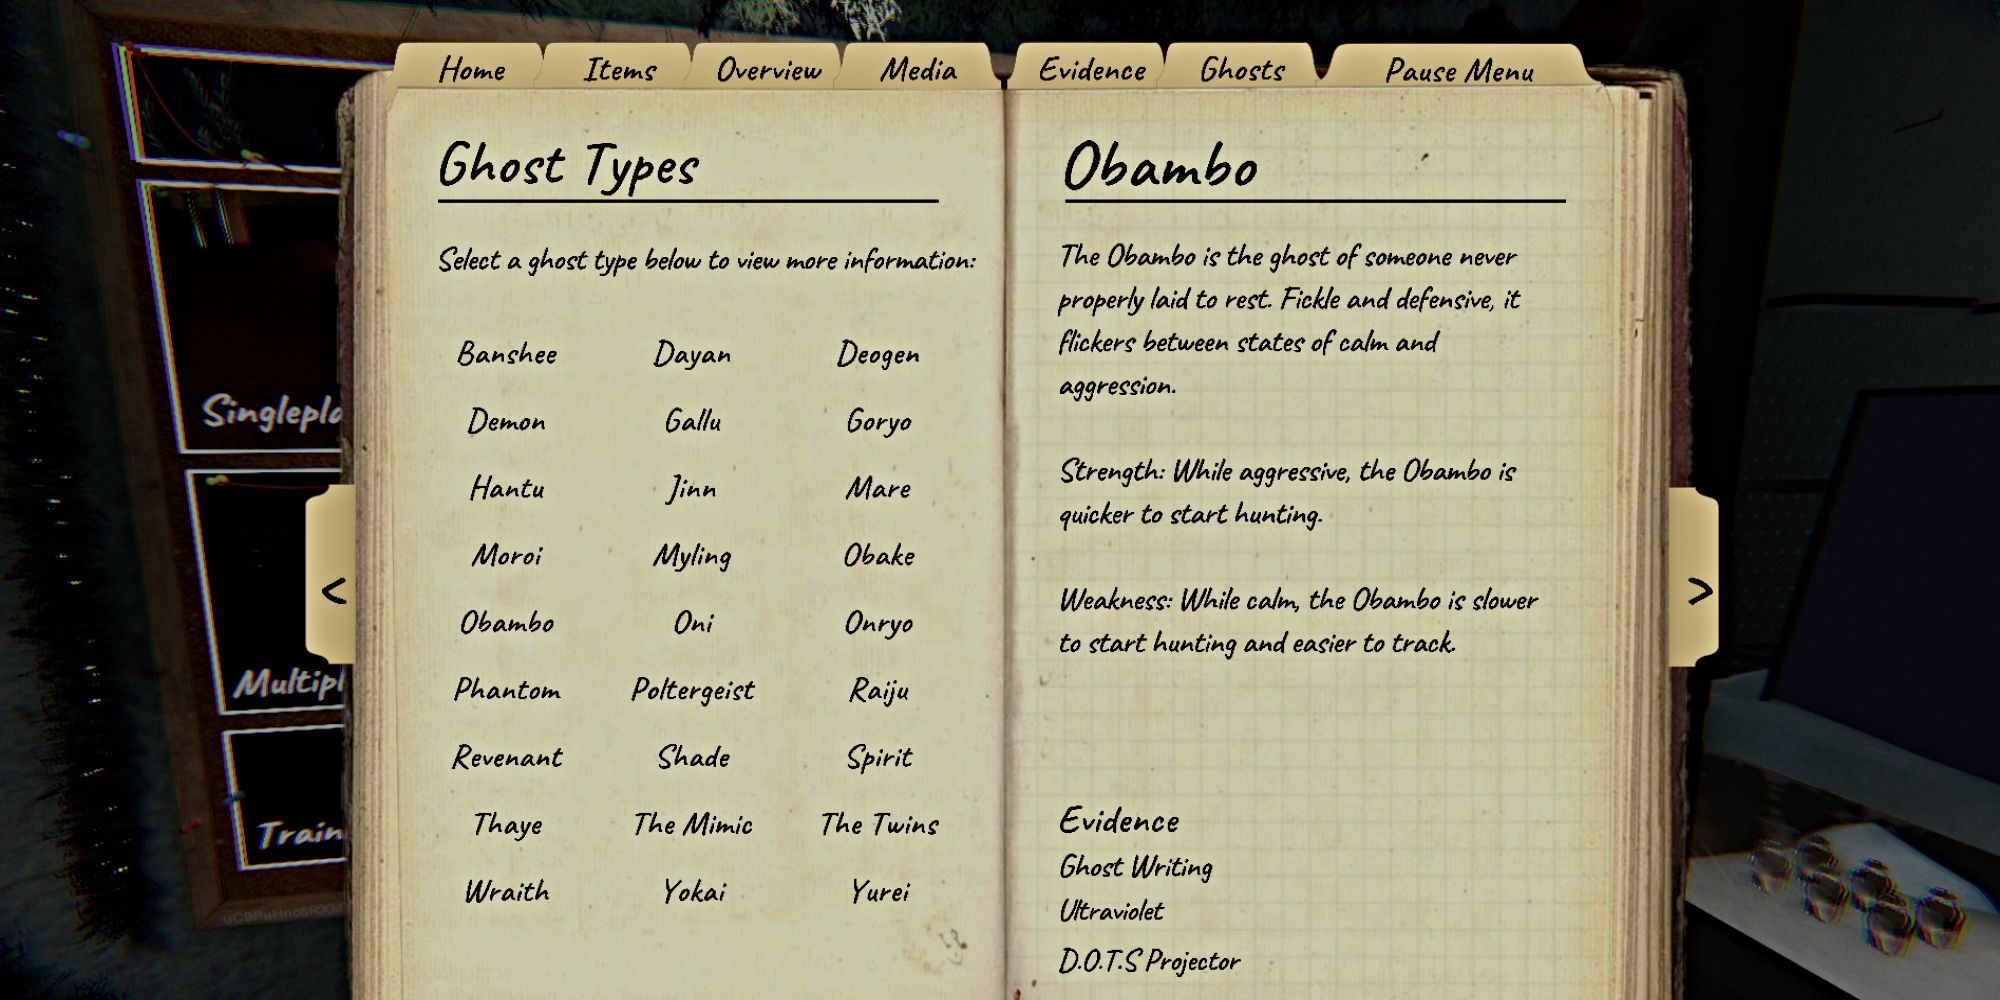 Home Items Overview Media Evidence Ghosts Pause Menu
Ghost Types
Select a ghost type below to view more information:
Banshee Dayan Deogen
Demon Gallu Goryo
Hantu Jinn Mare
Moroi Myling Obake
Obambo Oni Onryo
Phantom Poltergeist Raiju
Revenant Shade Spirit
Thaye The Mimic The Twins
Wraith Yokai Yurei
<
Obambo
The Obambo is the ghost of someone never
properly laid to rest. Fickle and defensive, it
flickers between states of calm and
aggression.
Strength: While aggressive, the Obambo is
quicker to start hunting.
Weakness: While calm, the Obambo is slower
to start hunting and easier to track.
Evidence
Ghost Writing
Ultraviolet
D.O.T.S Projector
>
Singlepla
Multipl
Train